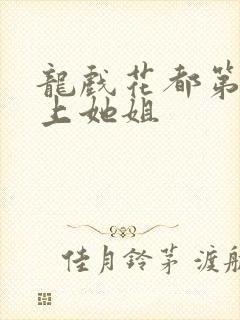 龍戲花都第
上她姐
佳月鈴茅 渡航